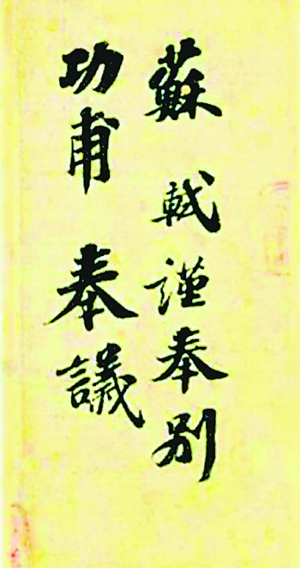 蘇軾謹奉別
功甫奉議